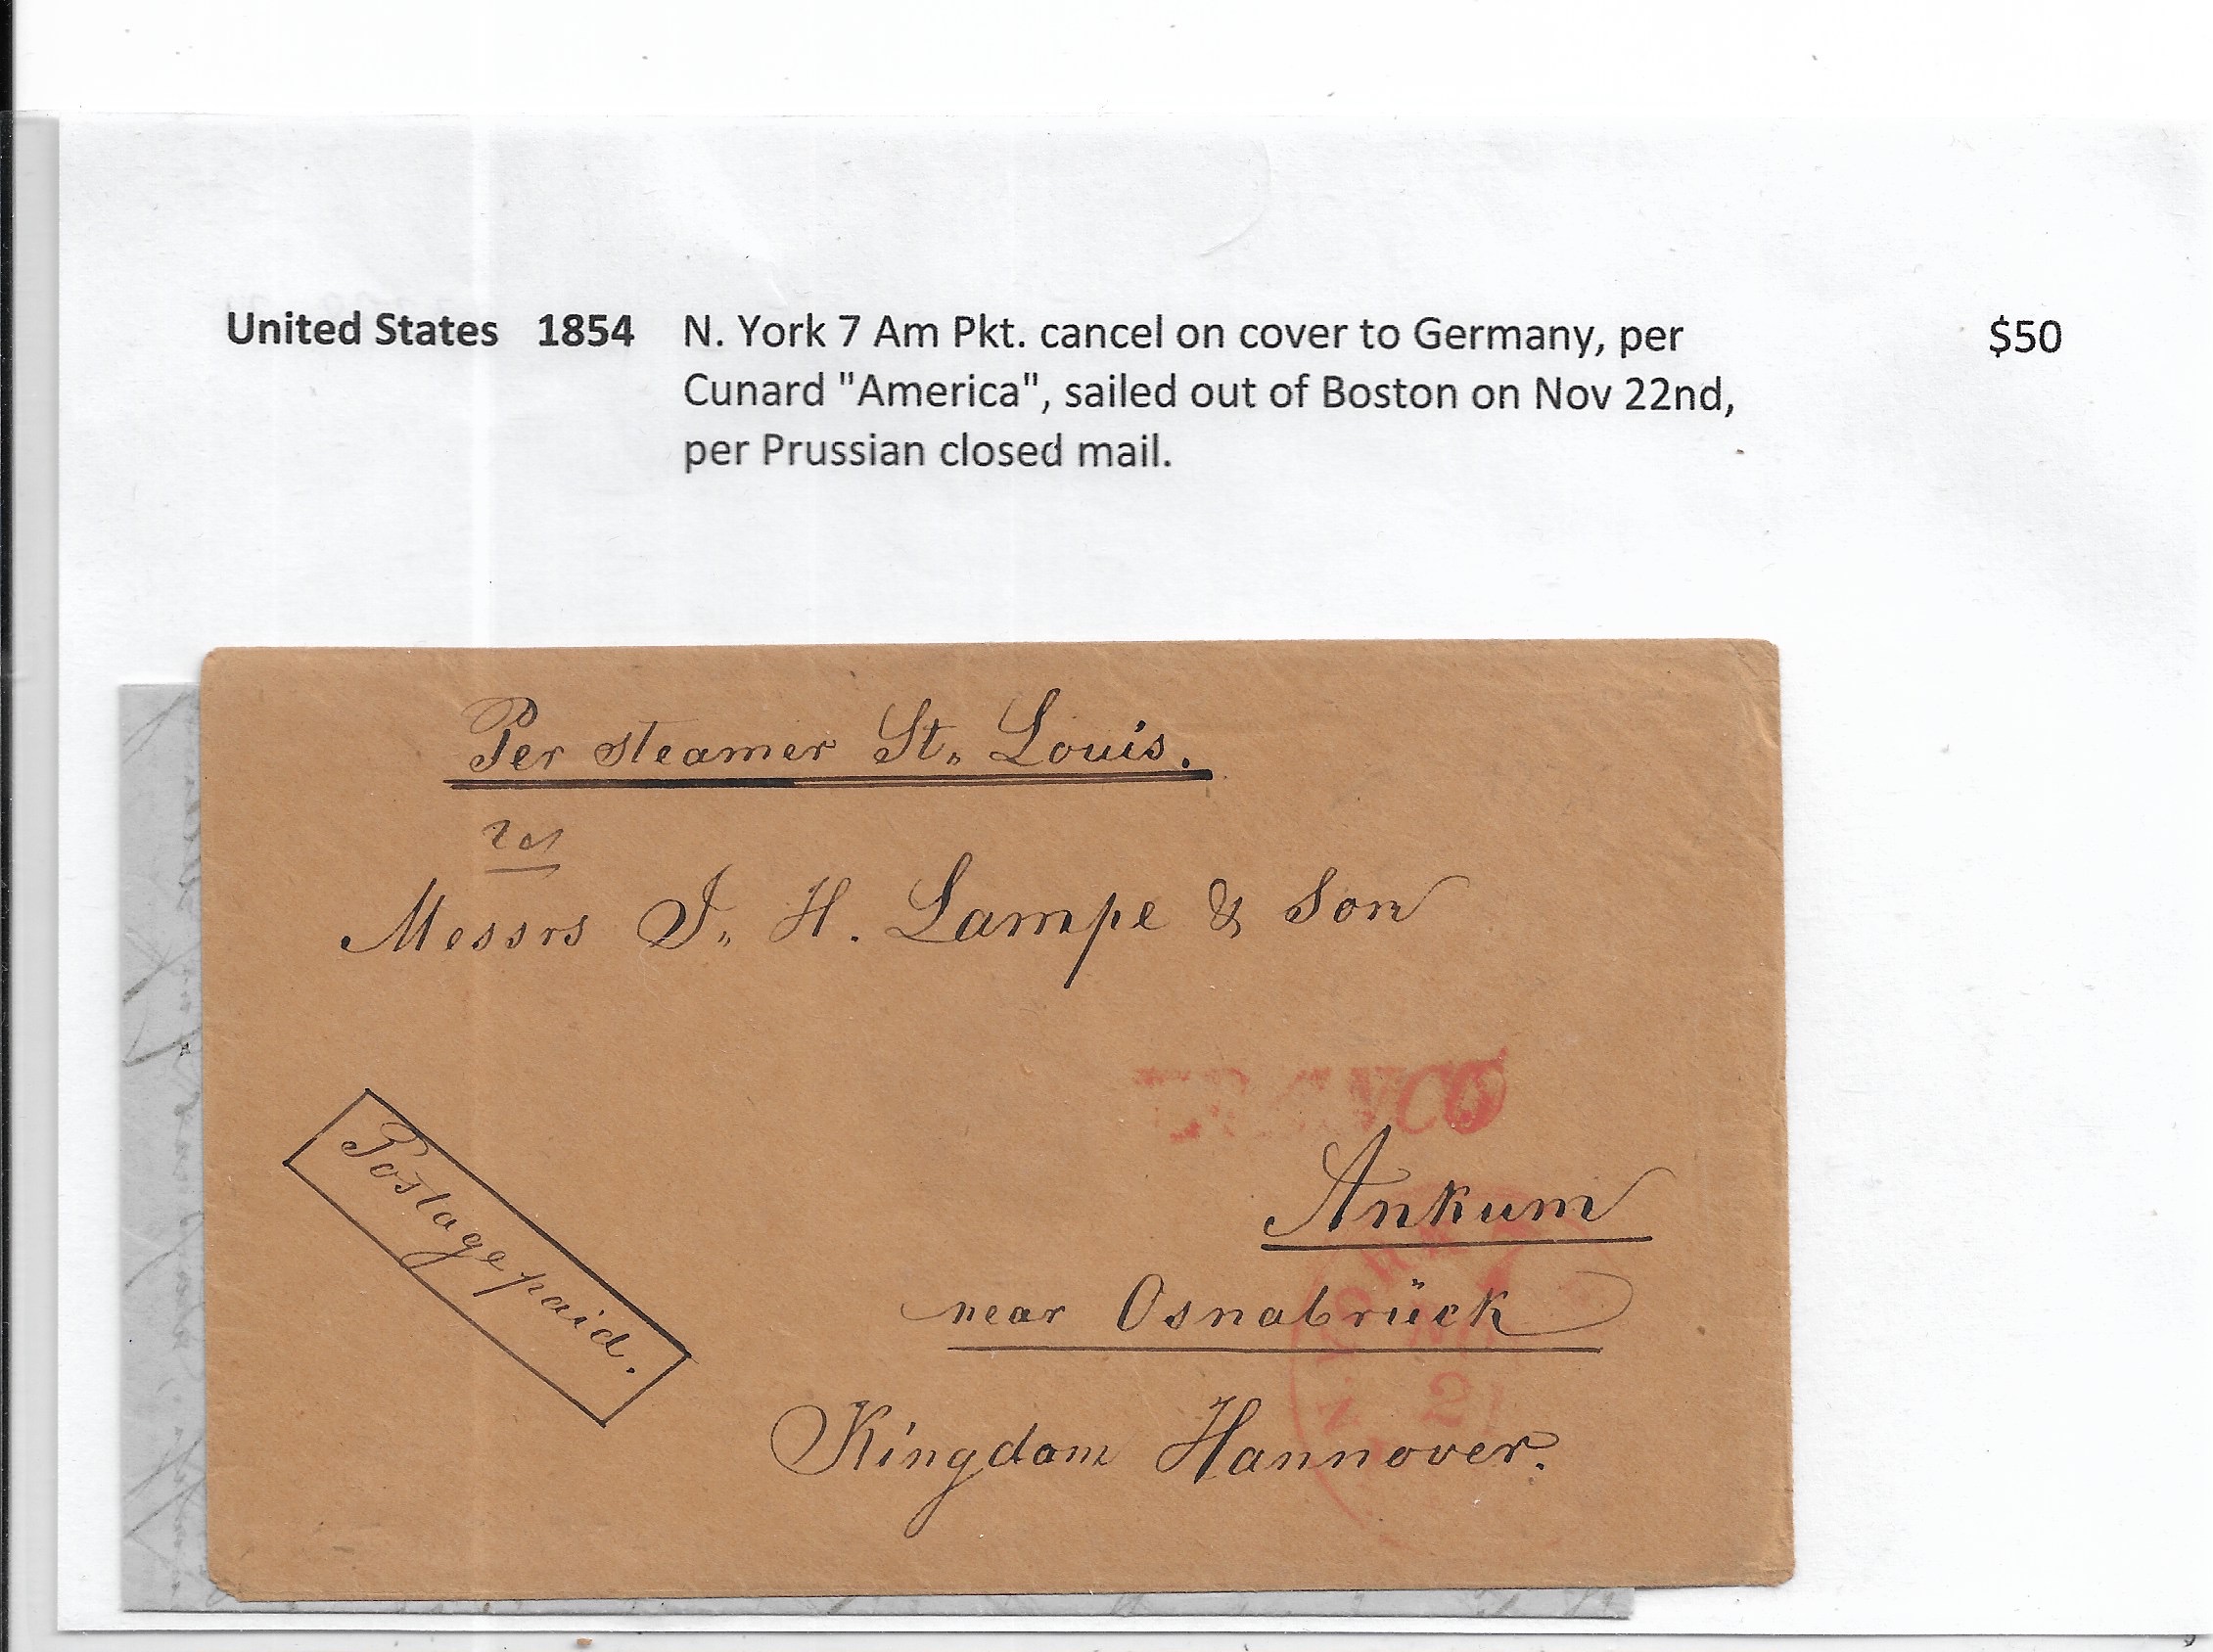 United States 1854 N. York 7 Am Pkt. cancel on cover to Germany, per $50
Cunard "America", sailed out of Boston on Nov 22nd,
per Prussian closed mail.
Per steamer St. Louis.
Messrs J. H. Lampe & Son
FRANCO
Postage paid.
Ankum
near Osnabrück
Kingdom Hannover.
N. YORK
7